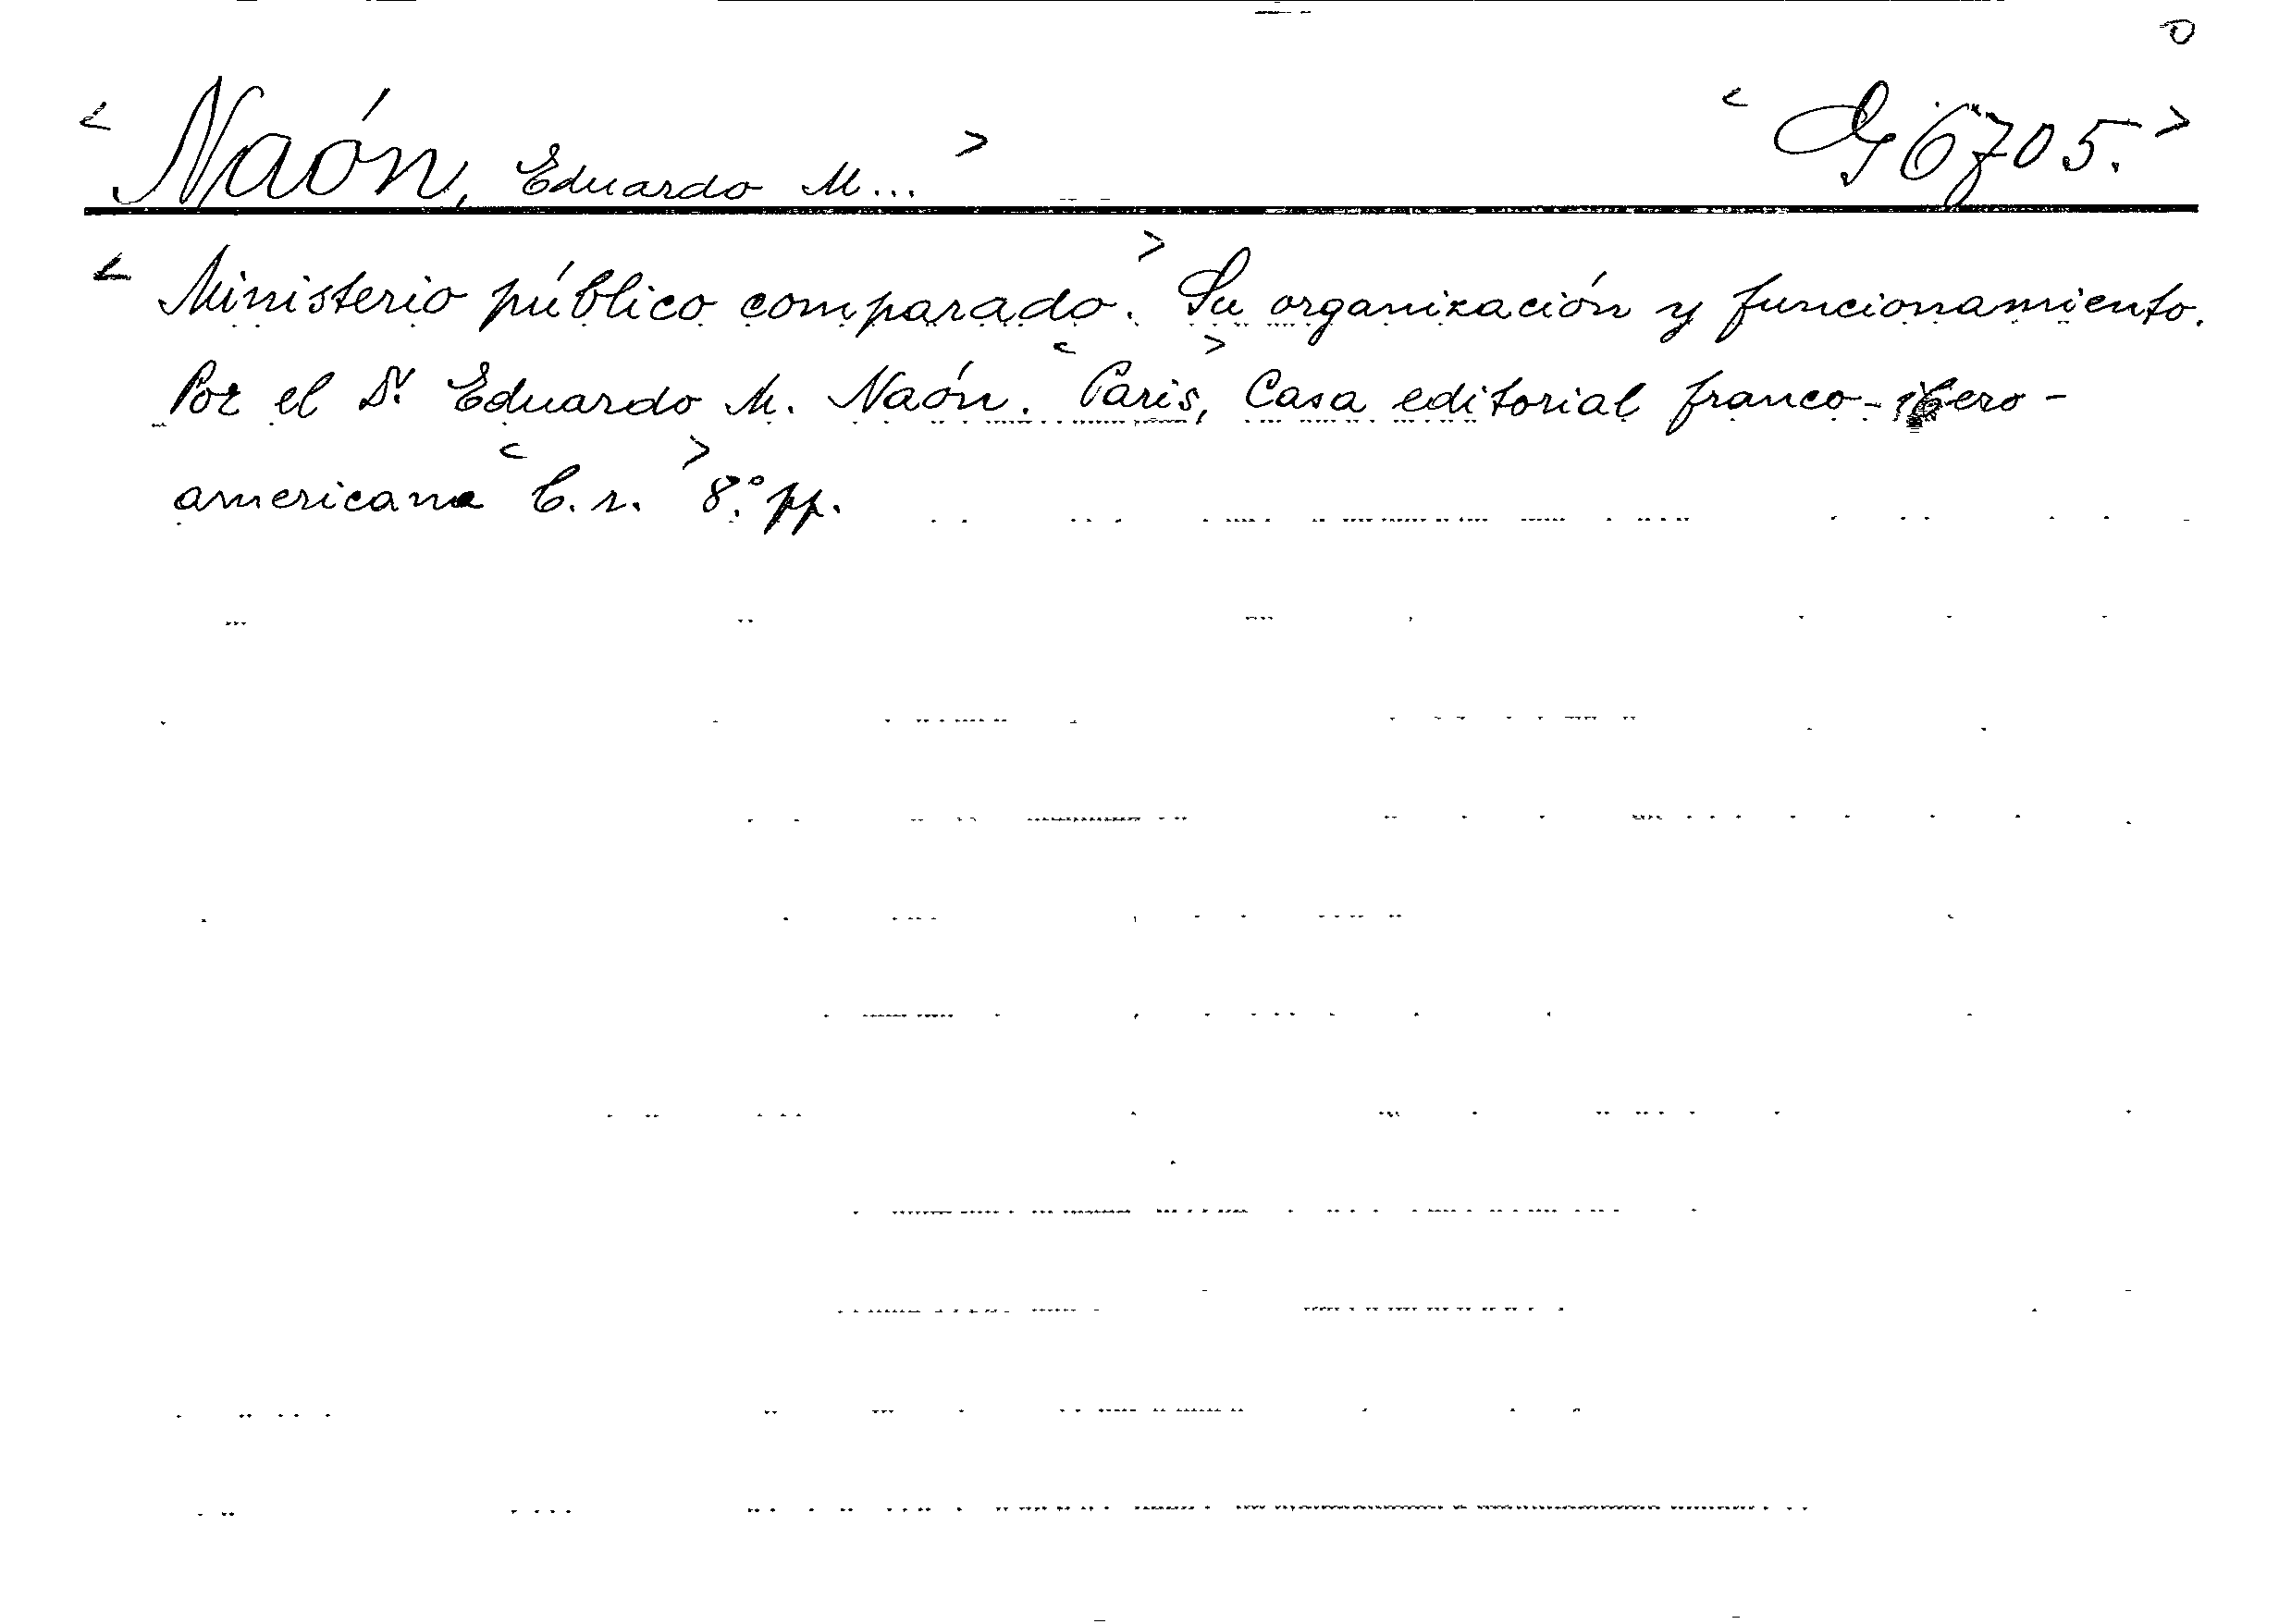 < Naón, Eduardo M... > < G 6705. >
< Ministerio público comparado. > Su organización y funcionamiento.
Por el Dr. Eduardo M. Naón. < Paris, > Casa editorial franco-ibero-
americana < C. r. > 8.º pp.